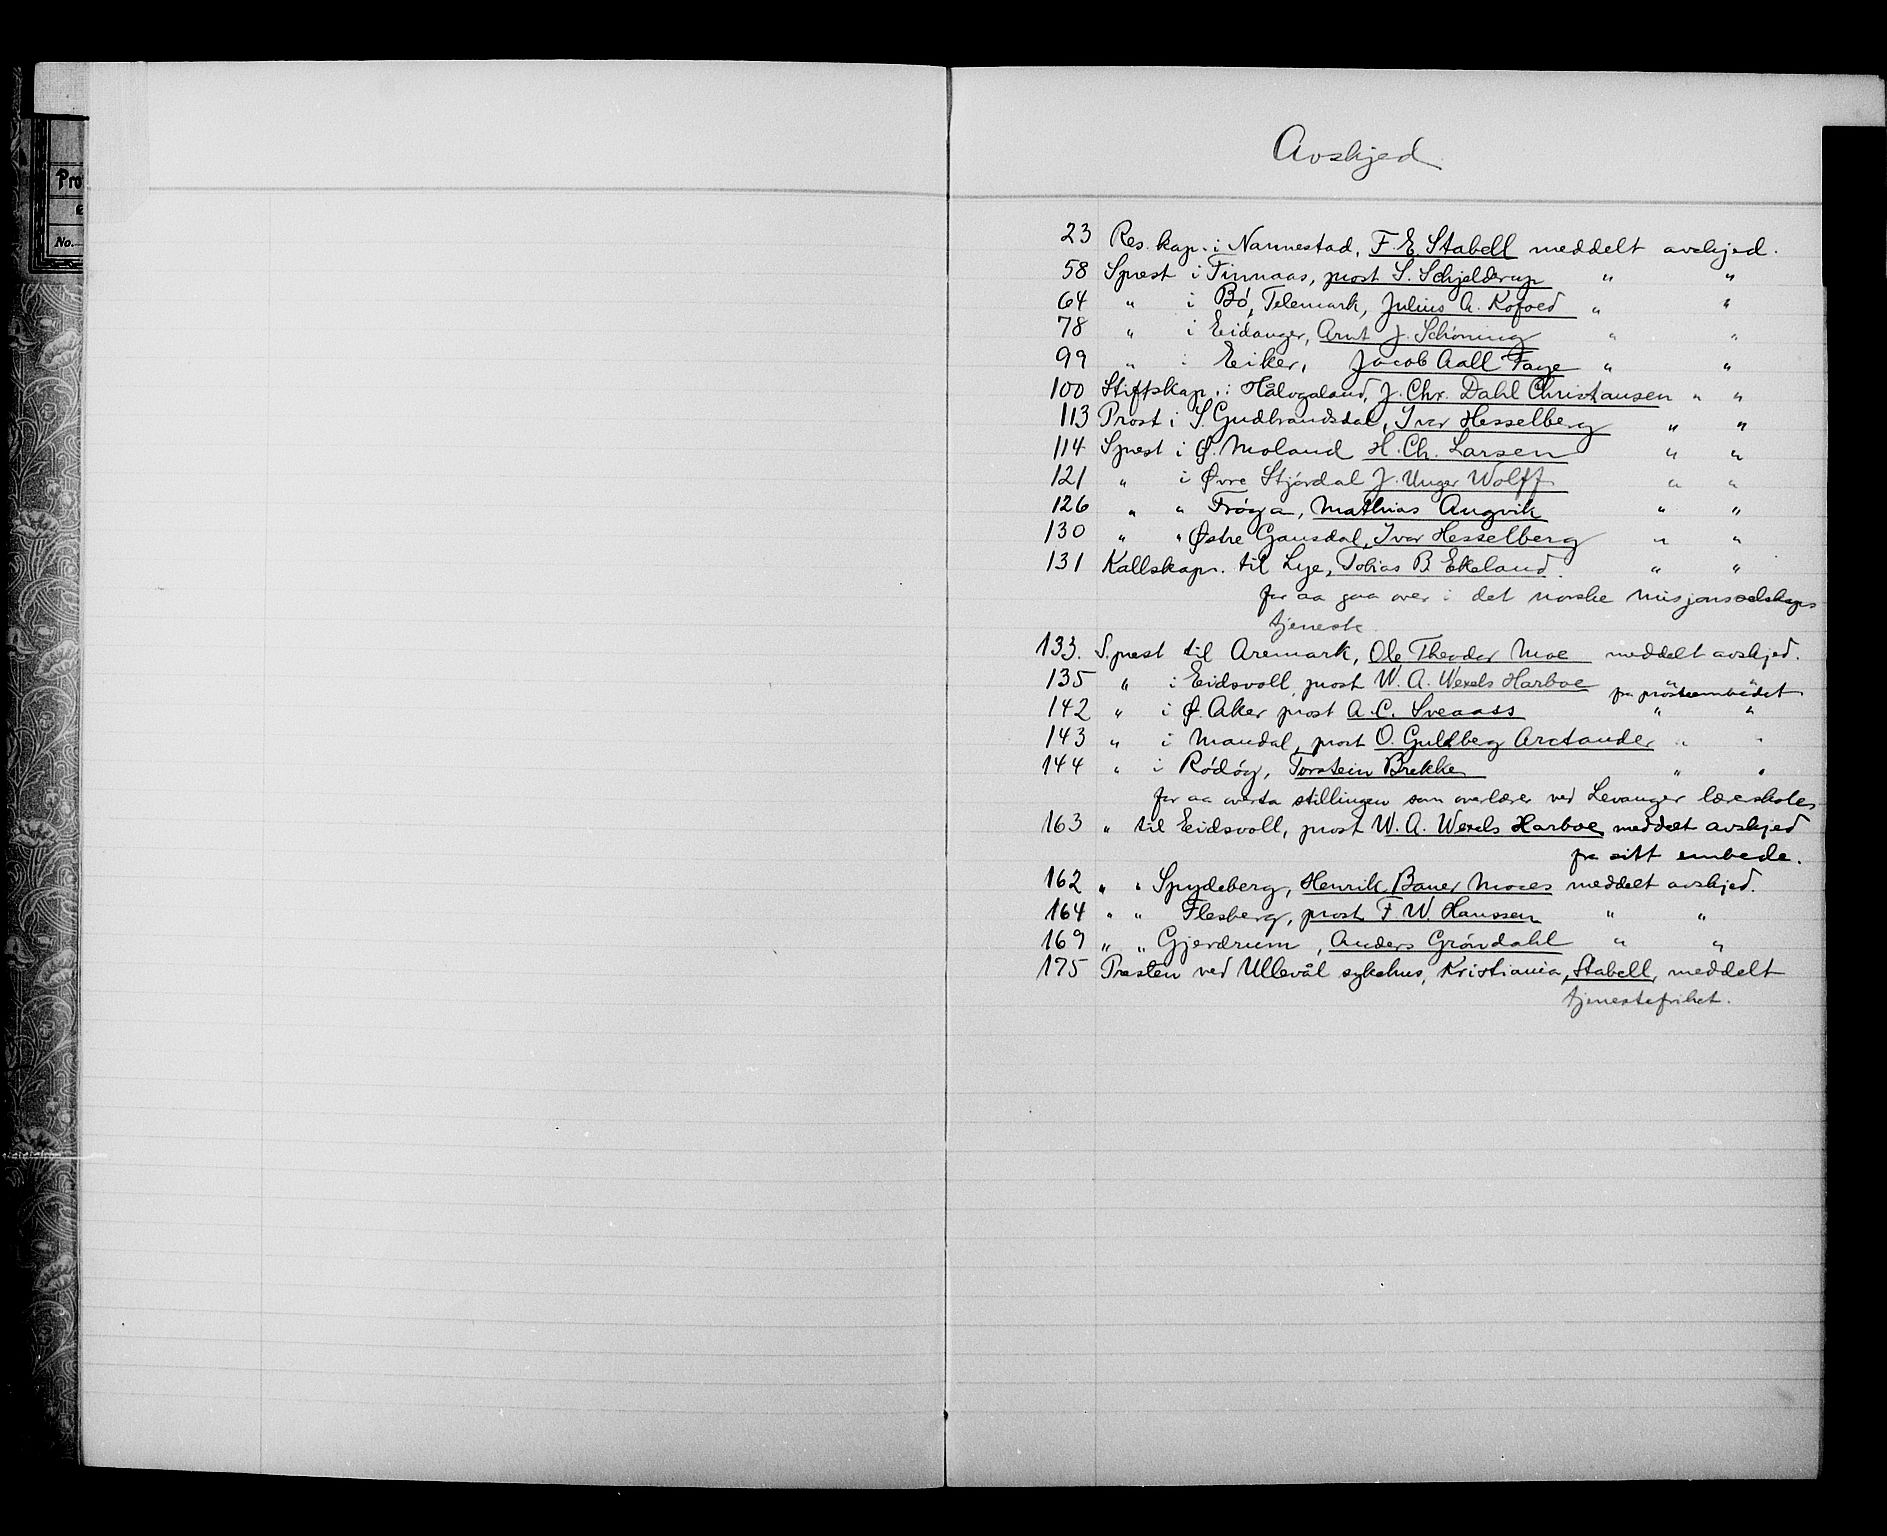 Pro
No.
Avskjed
23 Res. kap. i Nannestad, F. E. Stabell meddelt avskjed.
58 Spnest i Finnaas, prost S. Schjelderup " "
64 " i Bö, Telemark, Julius A. Kofoed " "
78 " i Eidanger, Arnt J. Schöning " "
99 " i Eiker, Jacob Aall Faye " "
100 Stiftskap. i Hålogaland, J. Chr. Dahl Christiansen " "
113 Prost i S. Gudbrandsdal, Ivar Hesselberg " "
114 Sprest i Ø. Moland H. Ch. Larsen " "
121 " i Øvre Stjördal J. Unger Wolff " "
126 " " Fröya, Mathias Angvik " "
130 " " Østre Gausdal, Ivar Hesselberg " "
131 Kallskap. til Lye, Tobias B. Ekeland. " "
for aa gaa over i det norske misjonsselskaps
tjeneste.
133. S.prest til Aremark, Ole Theodor Moe meddelt avskjed.
135 " i Eidsvoll, prost W. A. Wexels Harboe " "
fra prosteembedet
142 " i Ø. Aker prost A. C. Sveaass " "
143 " i Mandal, prost O. Guldberg Arctander " "
144 " i Rödöy, Torstein Brekke " "
for aa overta stillingen som overlærer ved Levanger lærerskole
163 " til Eidsvoll, prost W. A. Wexels Harboe meddelt avskjed
fra sitt embede.
162 " " Spydeberg, Henrik Bauer Moces meddelt avskjed.
164 " " Flesberg, prost F. W. Hanssen " "
169 " " Gjerdrum, Anders Gröndahl " "
175 Presten ved Ullevål sykehus, Kristiania, Stabell, meddelt
tjenestefrihet.